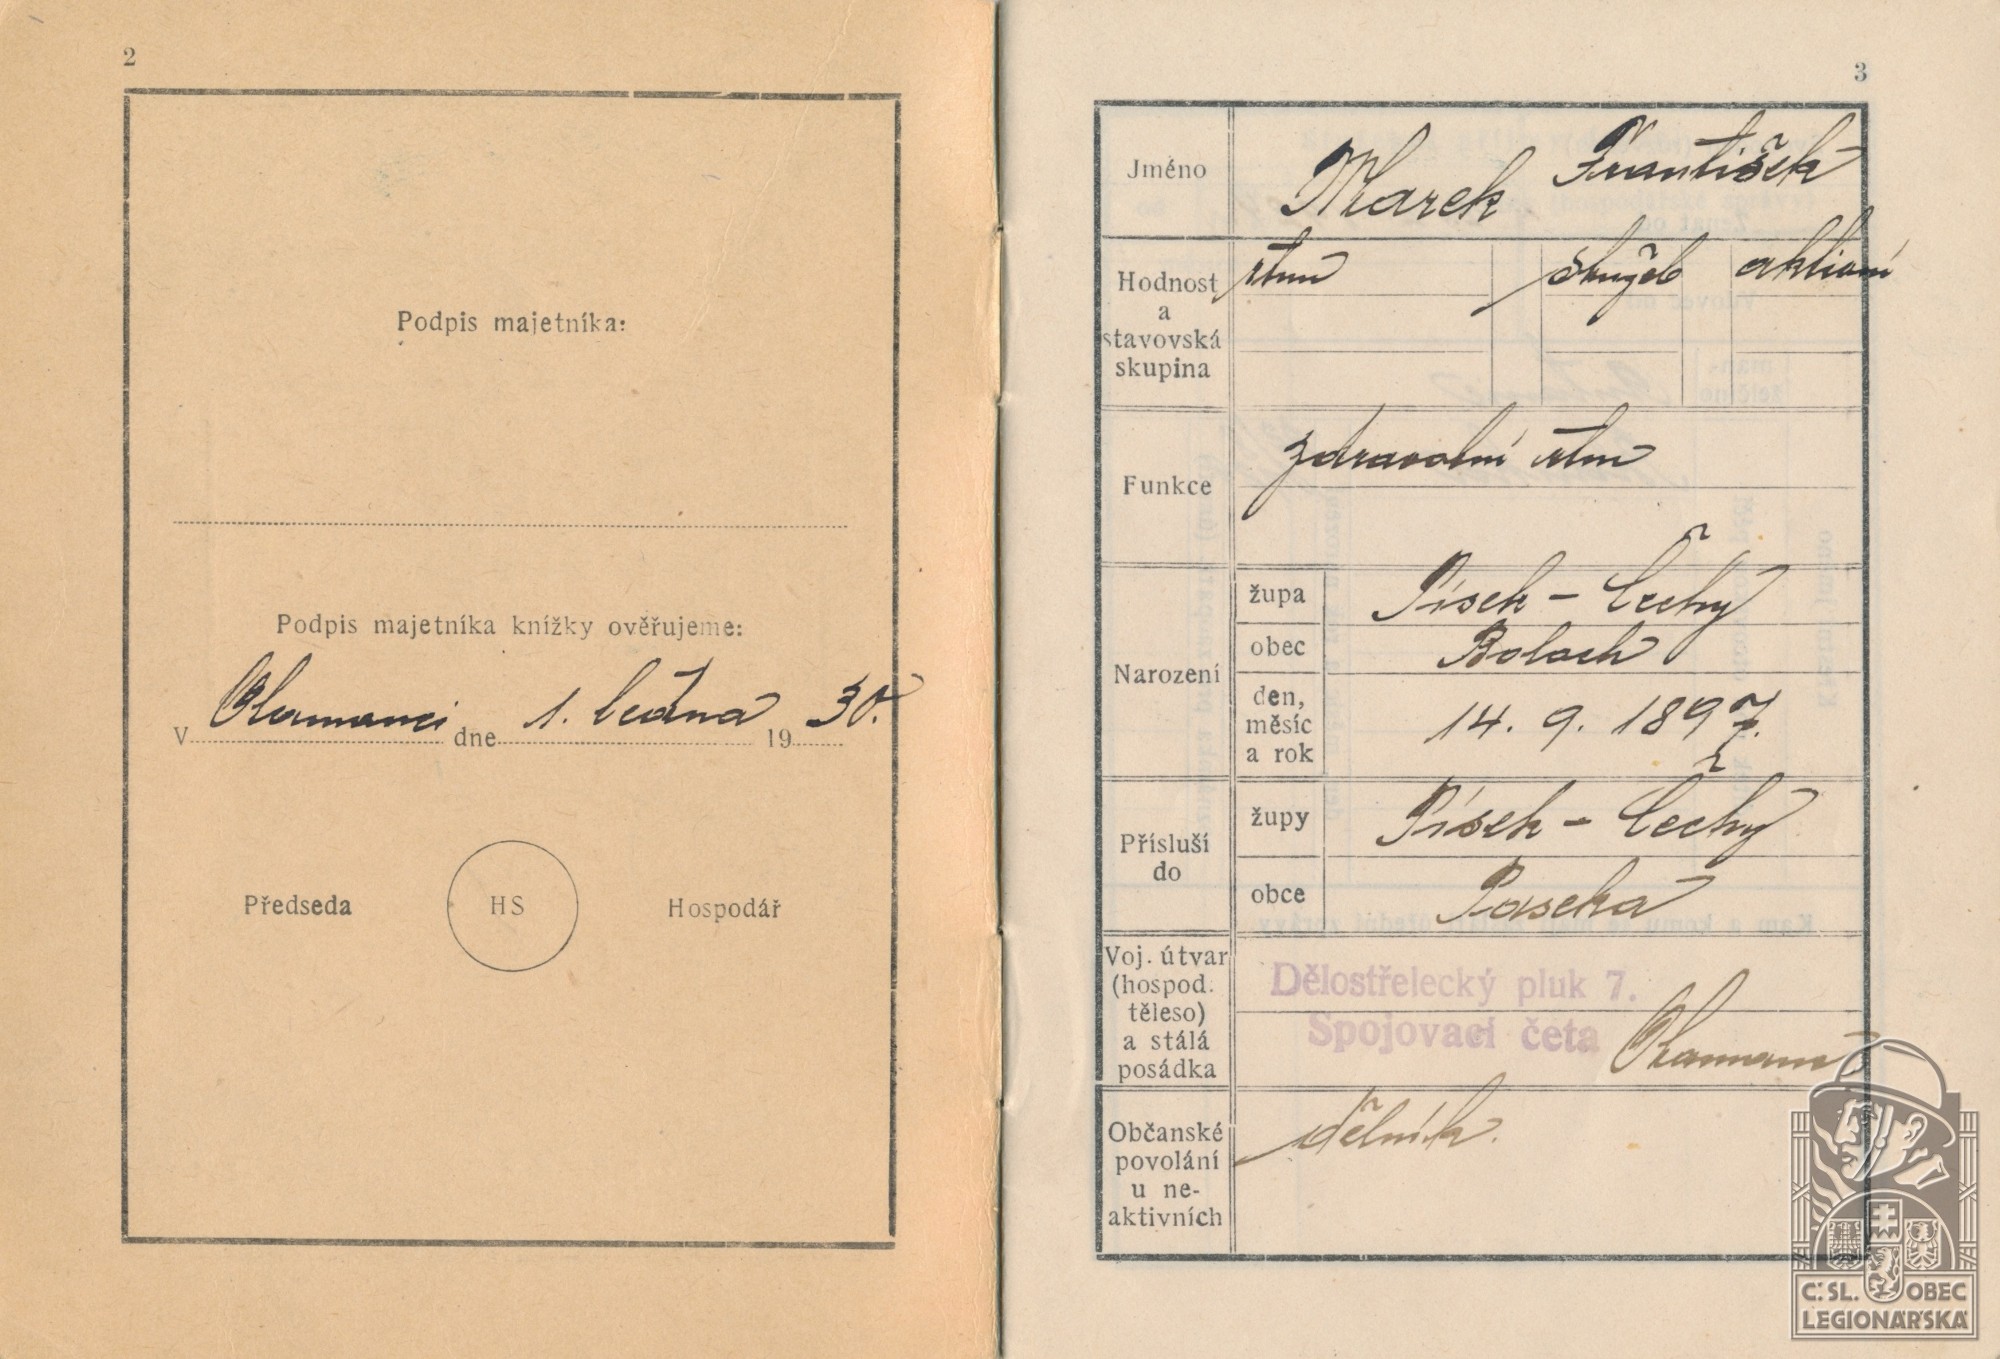 2
Podpis majetníka:
Podpis majetníka knížky ověřujeme:
V Olomouci dne 1. ledna 1930.
Předseda
HS
Hospodář
3
Jméno
Marek František
Hodnost
a
stavovská
skupina
rtm
služeb
aktivní
Funkce
zdravotní rtm
Narození
župa
Písek – Čechy
obec
den,
měsíc
a rok
14. 9. 1897.
Přísluší
do
župy
Písek – Čechy
obce
Paseka
Voj. útvar
(hospod.
těleso)
a stálá
posádka
Dělostřelecký pluk 7.
Spojovací četa
Olomouc
Občanské
povolání
u ne-
aktivních
dělník.
Č. SL. OBEC
LEGIONÁŘSKÁ